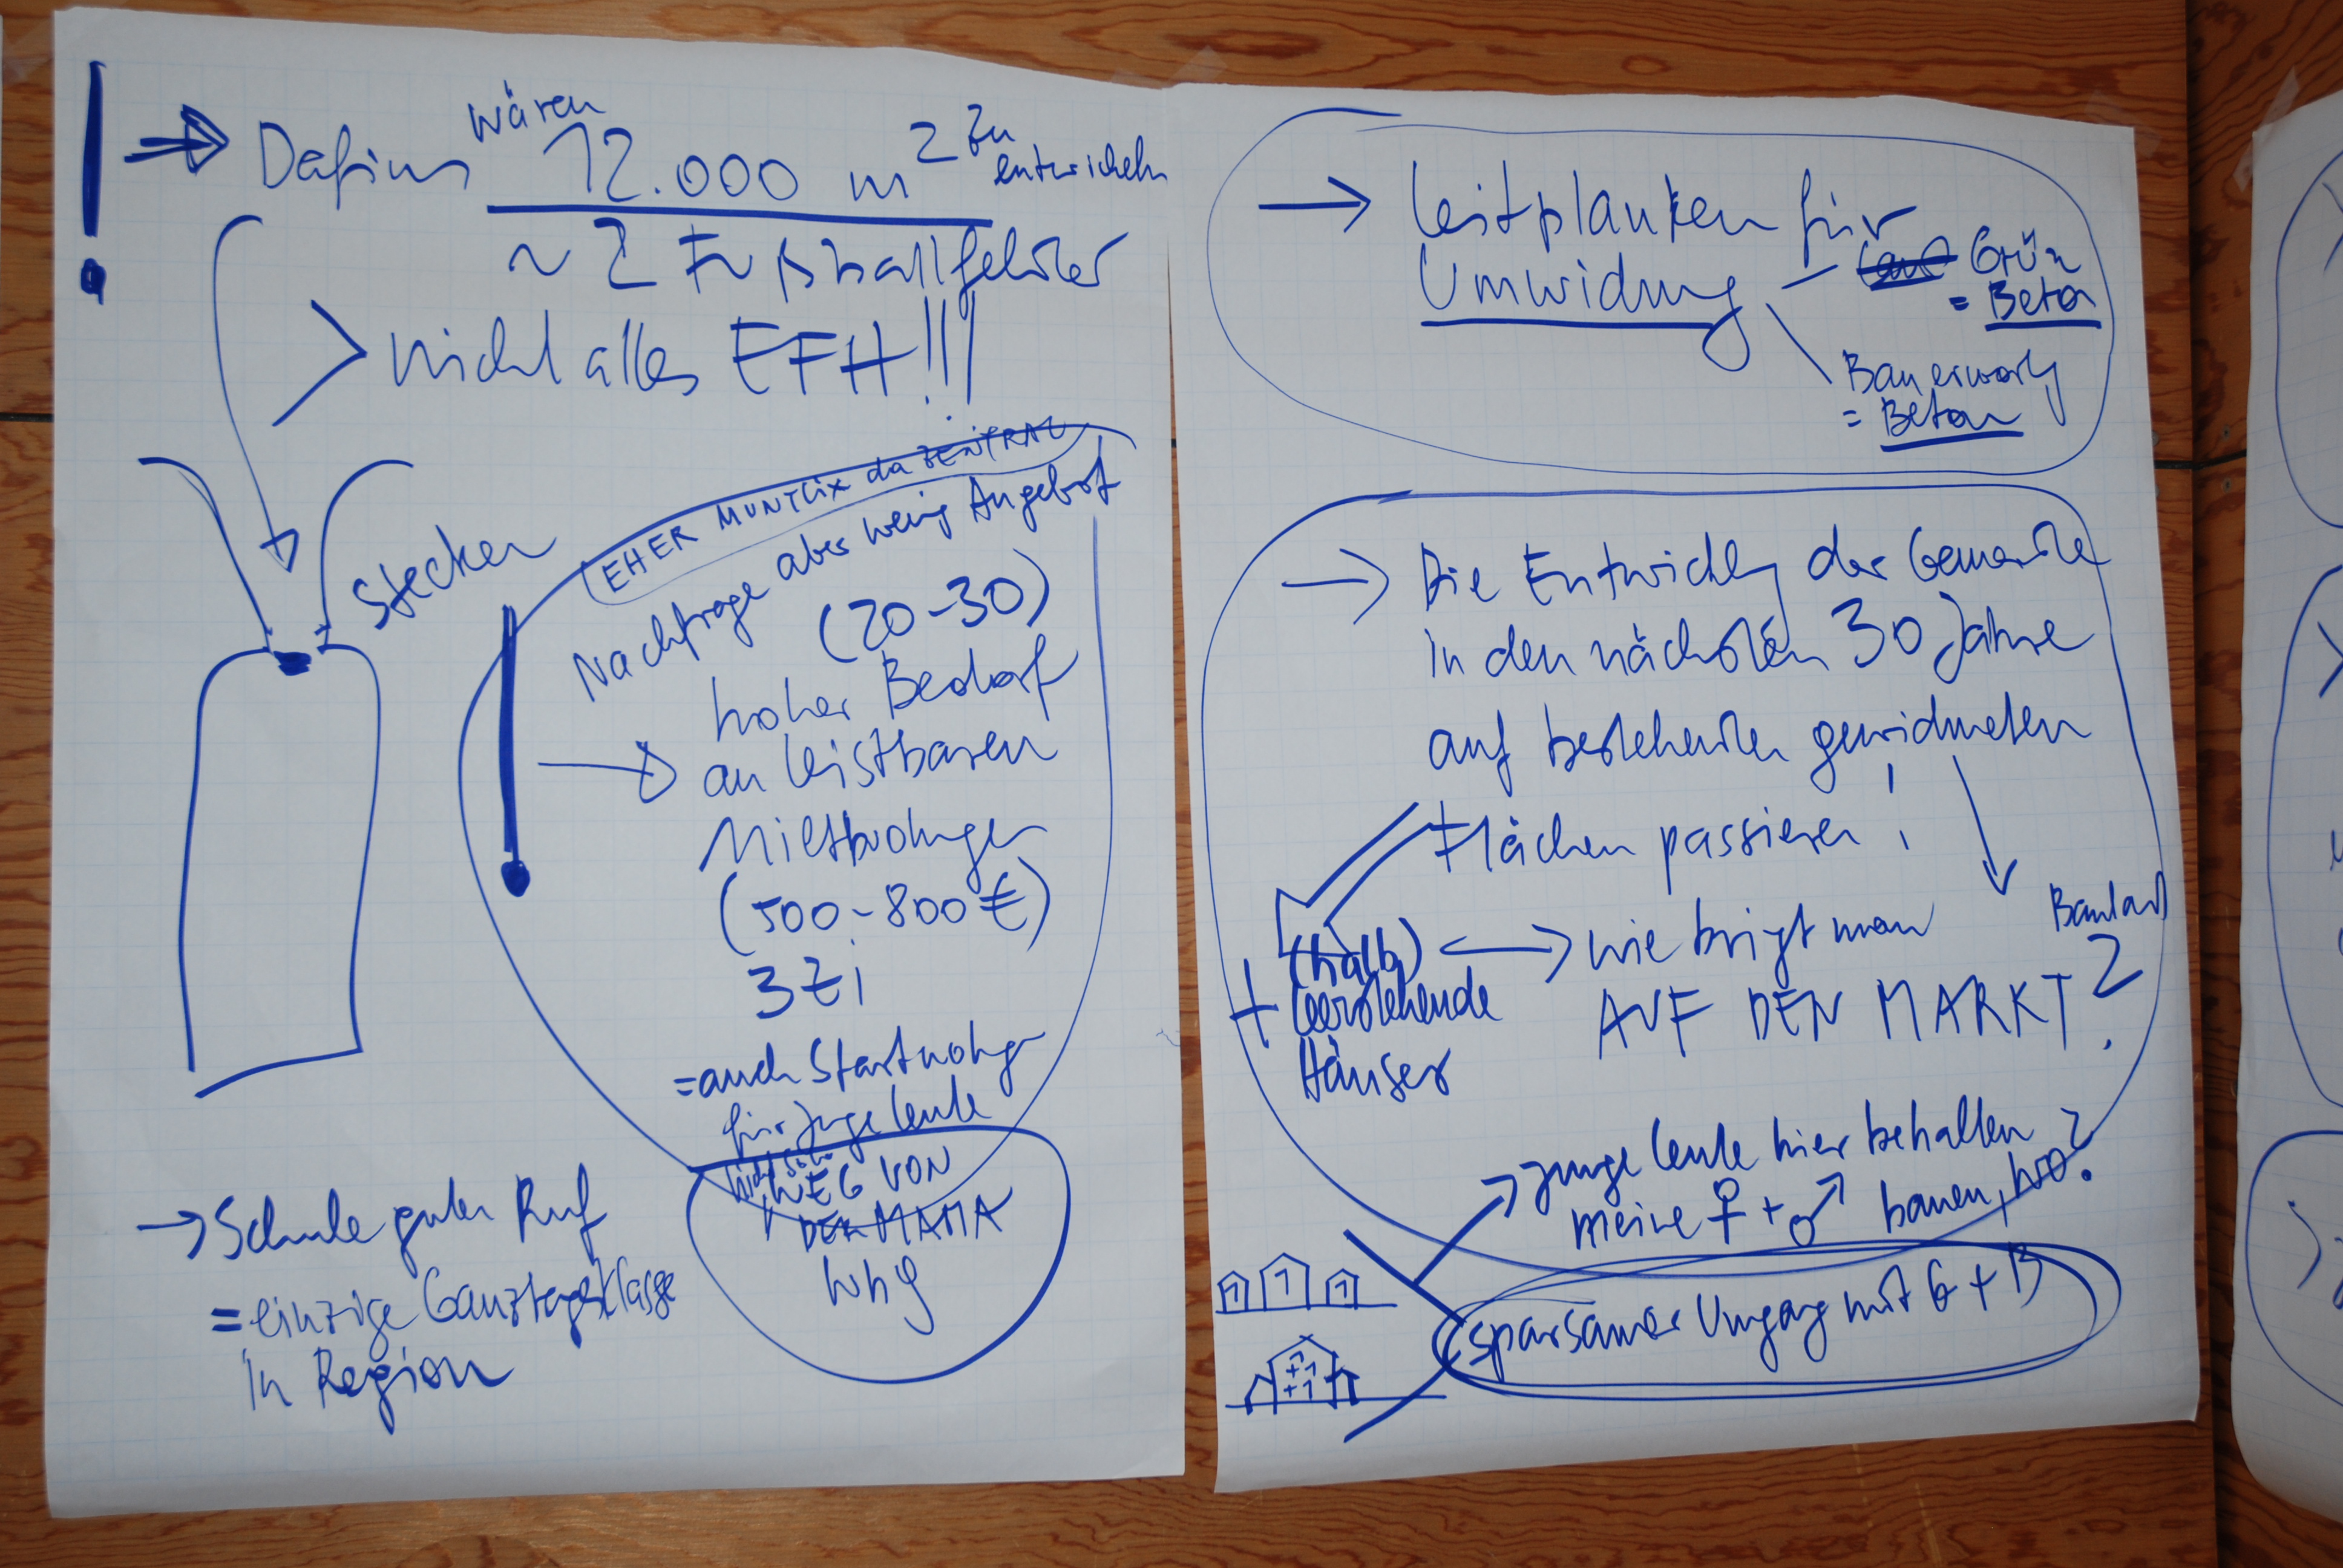 ! → Dafins wären 12.000 m² zu entwickeln
~ 2 Fußballfelder
> nicht alles EFH!!!
Stecken
EHER MUNTLIX da ZENTRAL
Nachfrage aber wenig Angebot
(20-30)
hoher Bedarf
→ an leistbaren
Mietwohngen
(500-800€)
3 Zi
= auch Startwohng
für junge Leute
WEG VON
DER MAMA
Whg
→ Schule guten Ruf
= einzige Ganztagesklasse
in Region
→ Leitplanken für
Umwidmung
Grün
= Beton
Bauerwartg
= Beton
→ Die Entwicklg der Gemeinde
in den nächsten 30 Jahre
auf bestehenden gewidmeten
Flächen passieren!
+ (halb) leerstehende Häuser
↔ wie bringt man
Bauland
AUF DEN MARKT?
→ junge Leute hier behalten
meine ♀ + ♂ bauen, wo?
sparsamer Umgang mit G + B